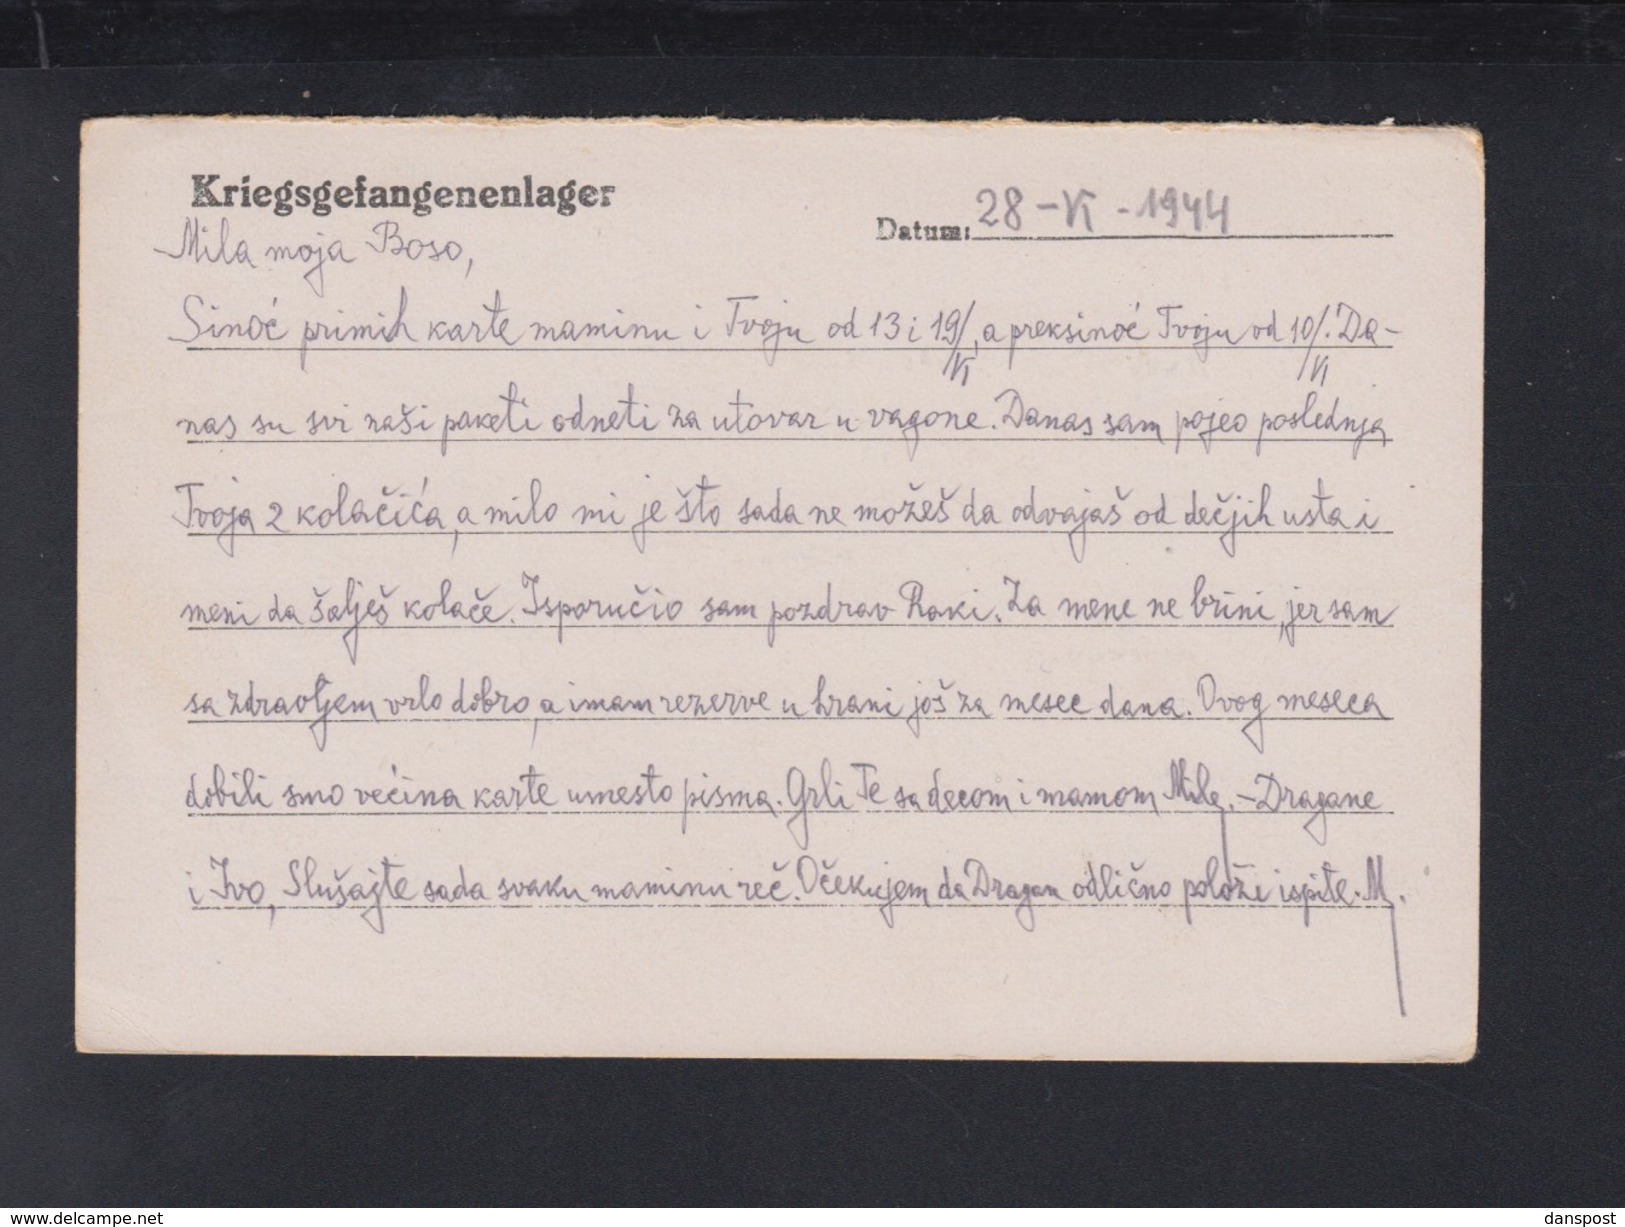 Kriegsgefangenenlager
Datum: 28-VI-1944
Mila moja Boso,
Sinoć primih karte maminu i Tvoju od 13 i 19/VI, a preksinoć Tvoju od 10/VI. Da-
nas su svi naši paketi odneti za utovar u vagone. Danas sam pojeo poslednja
Tvoja 2 kolačića, a milo mi je što sada ne možeš da odvajaš od dečjih usta i
meni da šalješ kolače. Isporučio sam pozdrav Raki. Za mene ne brini, jer sam
sa zdravljem vrlo dobro, a imam rezerve u hrani još za mesec dana. Ovog meseca
dobili smo većina karte umesto pisma. Grli Te sa decom i mamom Mile. - Dragane
i Ivo, Slušajte sada svaku maminu reč. Očekujem da Dragan odlično položi ispite. M.
www.delcampe.net
danspost